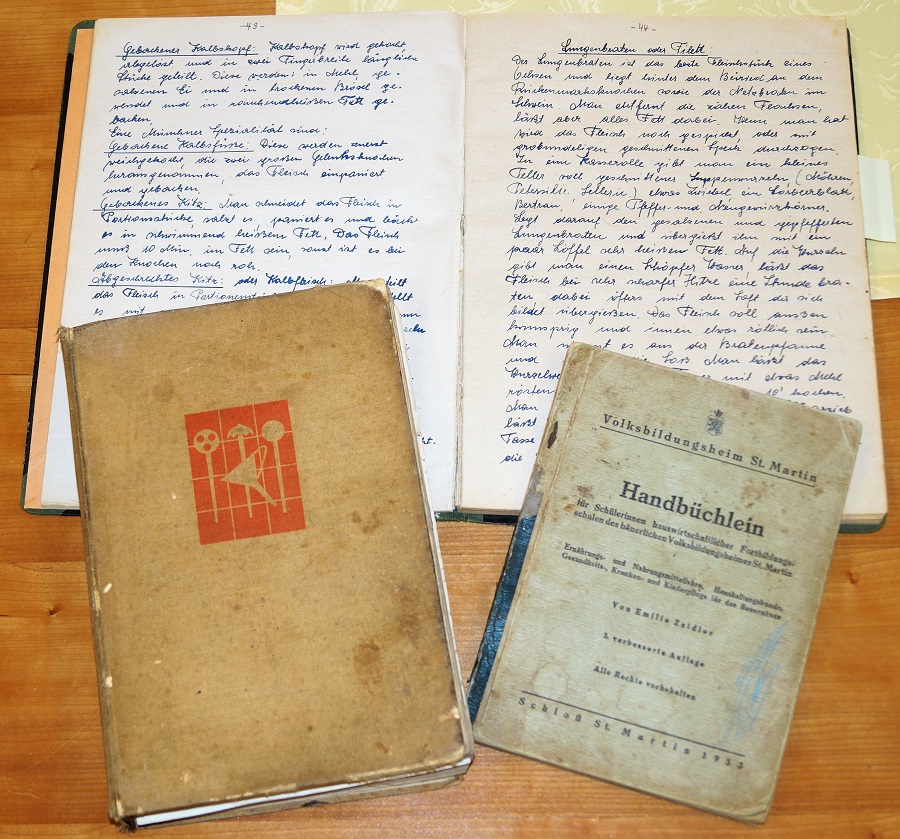 -43-
Gebackener Kalbskopf: Kalbskopf wird gekocht
abgelöst und in zwei Fingerbreite längliche
Stücke geteilt. Diese werden in Mehl, ge-
salzenen Ei und in trockenen Brösel ge-
wendet und in rauchendheißen Fett ge-
backen.
Eine Münchner Spezialität sind:
Gebackene Kalbsfüsse: Diese werden zuerst
weichgekocht, die zwei großen Gelenksknochen
herausgenommen, das Fleisch einpaniert
und gebacken.
Gebackenes Kitz: Man schneidet das Fleisch in
Portionsstücke salzt es, paniert es und bäckt
es in schwimmend heißem Fett. Das Fleisch
muß 10 Min. im Fett sein, sonst ist es bei
den Knochen noch roh.
Abgeschrecktes Kitz: oder Kalbfleisch:
das Fleisch in
es mit
-44-
Lungenbraten oder Filett:
Der Lungenbraten ist das beste Fleischstück eines
Ochsen und liegt hinter dem Beiried an dem
Rückenmarksknochen sowie der Netzbraten im
Schwein. Man entfernt die zähen Flachsen,
läßt aber alles Fett dabei. Dann man hat
wird das Fleisch noch gespickt oder mit
grobnudeligen geschnittenen Speck durchzogen.
In eine Kasserolle gibt man ein kleines
Teller voll geschnittener Suppenwurzeln (Möhren,
Petersilie, Sellerie) etwas Zwiebel ein Lorbeerblatt,
Bertram, einige Pfeffer- und Neugewürzkörner.
Legt darauf den gesalzenen und gepfefferten
Lungenbraten und übergießt ihn mit ein
paar Löffel sehr heißem Fett. Auf die Wurzeln
gibt man einen Schöpfer Wasser, läßt das
Fleisch bei sehr scharfer Hitze eine Stunde bra-
ten, dabei öfters mit dem Saft der sich
bildet übergießen. Das Fleisch soll außen
knusprig und innen etwas rötlich sein.
Man es aus der Bratenpfanne
und die Soß. Man läßt das
mit etwas Mehl
rösten 10' kochen.
Man
läßt
Tasse
die
Volksbildungsheim St. Martin
Handbüchlein
für Schülerinnen hauswirtschaftlicher Fortbildungs-
schulen des bäuerlichen Volksbildungsheimes St. Martin
Ernährungs- und Nahrungsmittellehre, Haushaltungskunde,
Gesundheits-, Kranken- und Kinderpflege für das Bauernhaus
Von Emilie Zeidler
3. verbesserte Auflage
Alle Rechte vorbehalten
Schloß St. Martin 1953